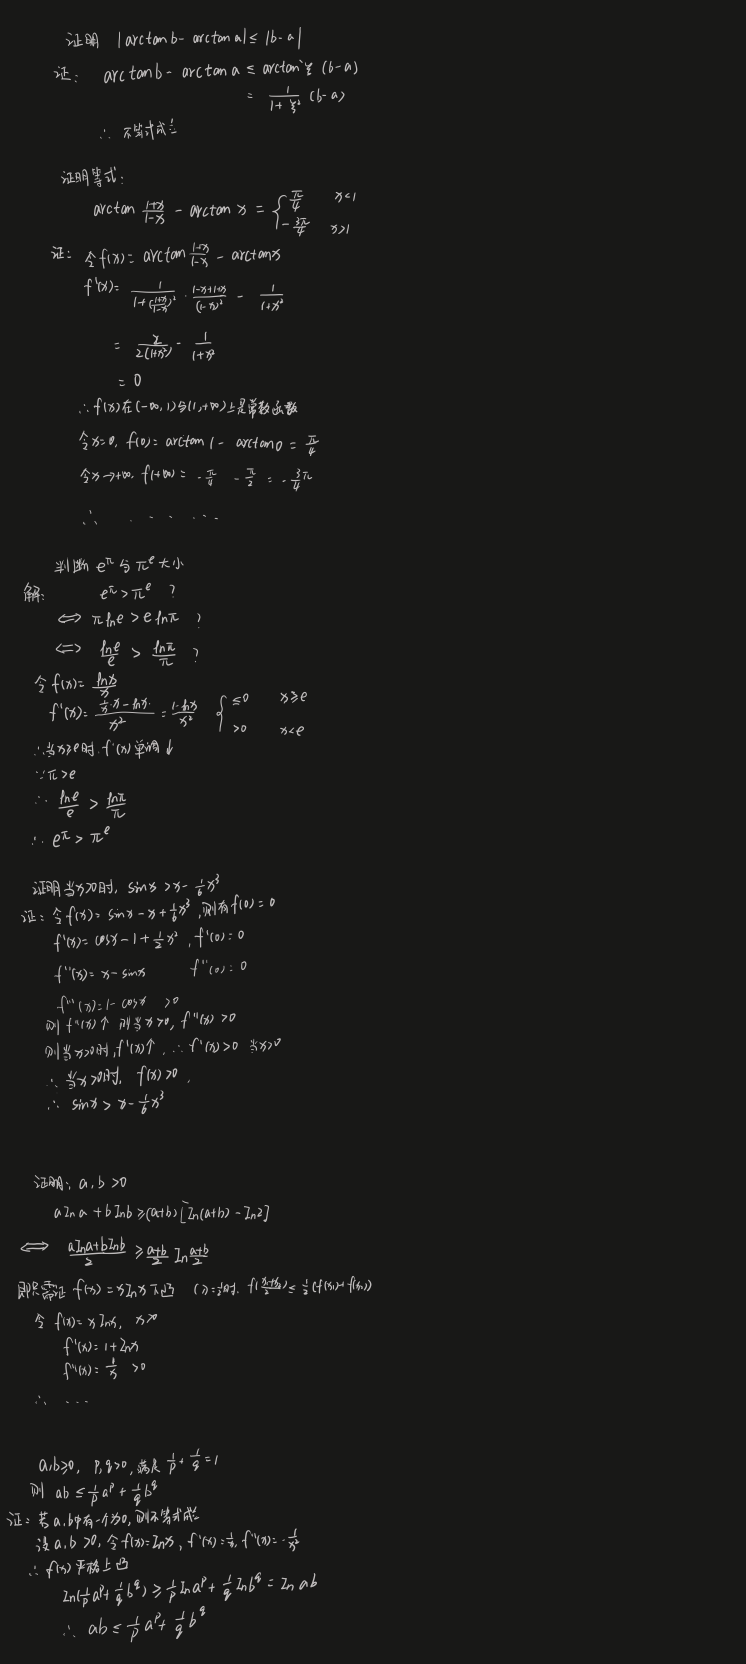 证明 |arctan b - arctan a| ≤ |b-a|
证: arctan b - arctan a ≤ arctan'ξ (b-a)
= 1/(1+ξ²) (b-a)
∴ 不等式成立
证明等式:
arctan (1+x)/(1-x) - arctan x = { π/4 x<1
-3π/4 x>1
证: 令 f(x) = arctan (1+x)/(1-x) - arctan x
f'(x) = 1/(1+((1+x)/(1-x))²) · (1-x+1+x)/(1-x)² - 1/(1+x²)
= 2/(2(1+x²)) - 1/(1+x²)
= 0
∴ f(x) 在 (-∞,1) 与 (1,+∞) 上是常数函数
令 x=0, f(0) = arctan 1 - arctan 0 = π/4
令 x→+∞, f(+∞) = -π/4 - π/2 = -3/4 π
∴ ......
判断 e^π 与 π^e 大小
解: e^π > π^e ?
⇔ π ln e > e ln π ?
⇔ ln e/e > ln π/π ?
令 f(x) = ln x/x
f'(x) = (1/x · x - ln x)/x² = (1-ln x)/x² { ≤0 x≥e
>0 x<e
∴ 当 x≥e 时 f'(x) 单调↓
∵ π>e
∴ ln e/e > ln π/π
∴ e^π > π^e
证明当 x>0 时, sin x > x - 1/6 x³
证: 令 f(x) = sin x - x + 1/6 x³, 则有 f(0) = 0
f'(x) = cos x - 1 + 1/2 x², f'(0) = 0
f''(x) = x - sin x f''(0) = 0
f'''(x) = 1 - cos x >0
则 f''(x)↑ 则当 x>0, f''(x) >0
则当 x>0 时, f'(x)↑, ∴ f'(x)>0 当 x>0
∴ 当 x>0 时, f(x) >0,
∴ sin x > x - 1/6 x³
证明: a, b >0
a ln a + b ln b ≥ (a+b) [ln(a+b) - ln 2]
⇔ (a ln a + b ln b)/2 ≥ (a+b)/2 ln (a+b)/2
即只需证 f(x) = x ln x 下凸 (λ=1/2时, f((x₁+x₂)/2) ≤ 1/2 (f(x₁)+f(x₂)))
令 f(x) = x ln x, x>0
f'(x) = 1 + ln x
f''(x) = 1/x >0
∴ ...
a,b≥0, p,q>0, 满足 1/p + 1/q = 1
则 ab ≤ 1/p a^p + 1/q b^q
证: 若 a,b 中有一个为 0, 则不等式成立
设 a,b >0, 令 f(x) = ln x, f'(x) = 1/x, f''(x) = -1/x²
∴ f(x) 严格上凸
ln(1/p a^p + 1/q b^q) ≥ 1/p ln a^p + 1/q ln b^q = ln ab
∴ ab ≤ 1/p a^p + 1/q b^q